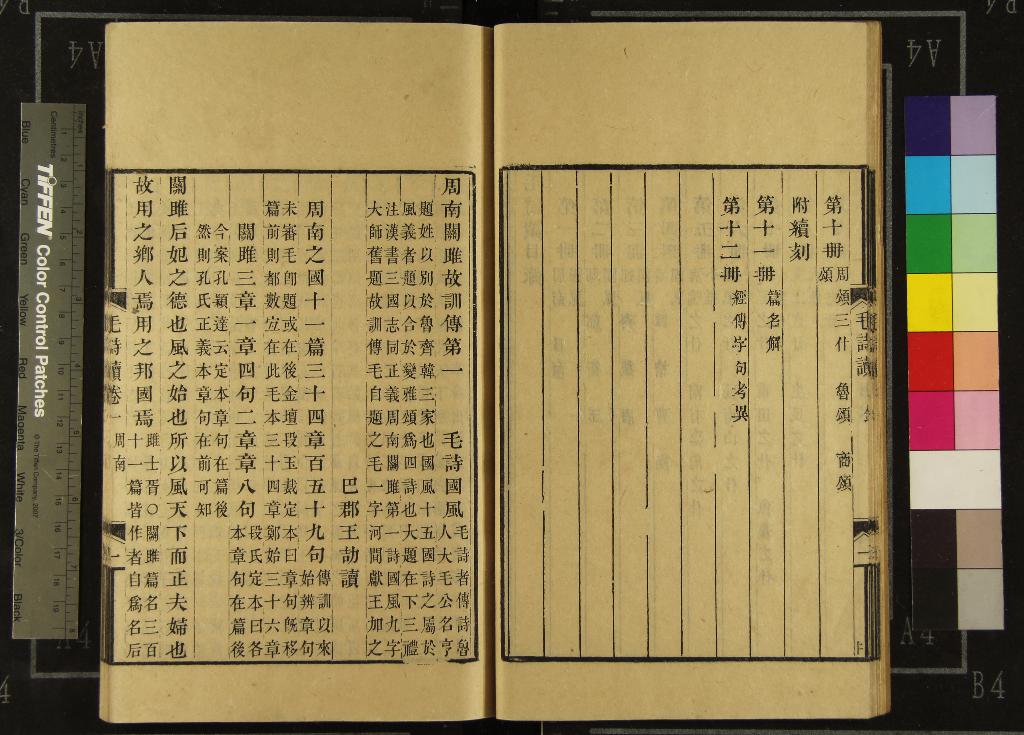 第十冊 周頌三什 魯頌 商頌
頌
附續刻
第十一冊 篇名解
第十二冊 經傳字句考異
毛詩讀
周南關雎故訓傳第一 毛詩國風 毛詩者傳詩魯
人大毛公名亨
題姓以別於魯齊韓三家也國風十五國詩之屬於
風義者題以合於變雅頌為四詩也大題在下三禮
注漢書三國志同正義周南關雎第一詩國風九字
大師舊題故訓傳毛自題之毛一字河間獻王加之
巴郡王劼讀
周南之國十一篇三十四章百五十九句 傳訓以來
始辨章句
未審毛卽題或在後金壇段玉裁定本曰章句旣移
篇前則都數宜在此毛本三十四章鄭始三十六章
關雎三章一章四句二章章八句 段氏定本曰各
本章句在篇後
今案孔穎達云定本章句在篇後
然則孔氏正義本章句在前可知
關雎后妃之德也風之始也所以風天下而正夫婦也
故用之鄉人焉用之邦國焉 雎士胥〇關雎篇名三百
十一篇皆作者自爲名后
毛詩讀卷一
周南
一
TIFFEN Color Control Patches
© The Tiffen Company, 2007
Inches
Centimetres
Blue Cyan Green Yellow Red Magenta White 3/Color Black
A4
A4
A4
A4
B4